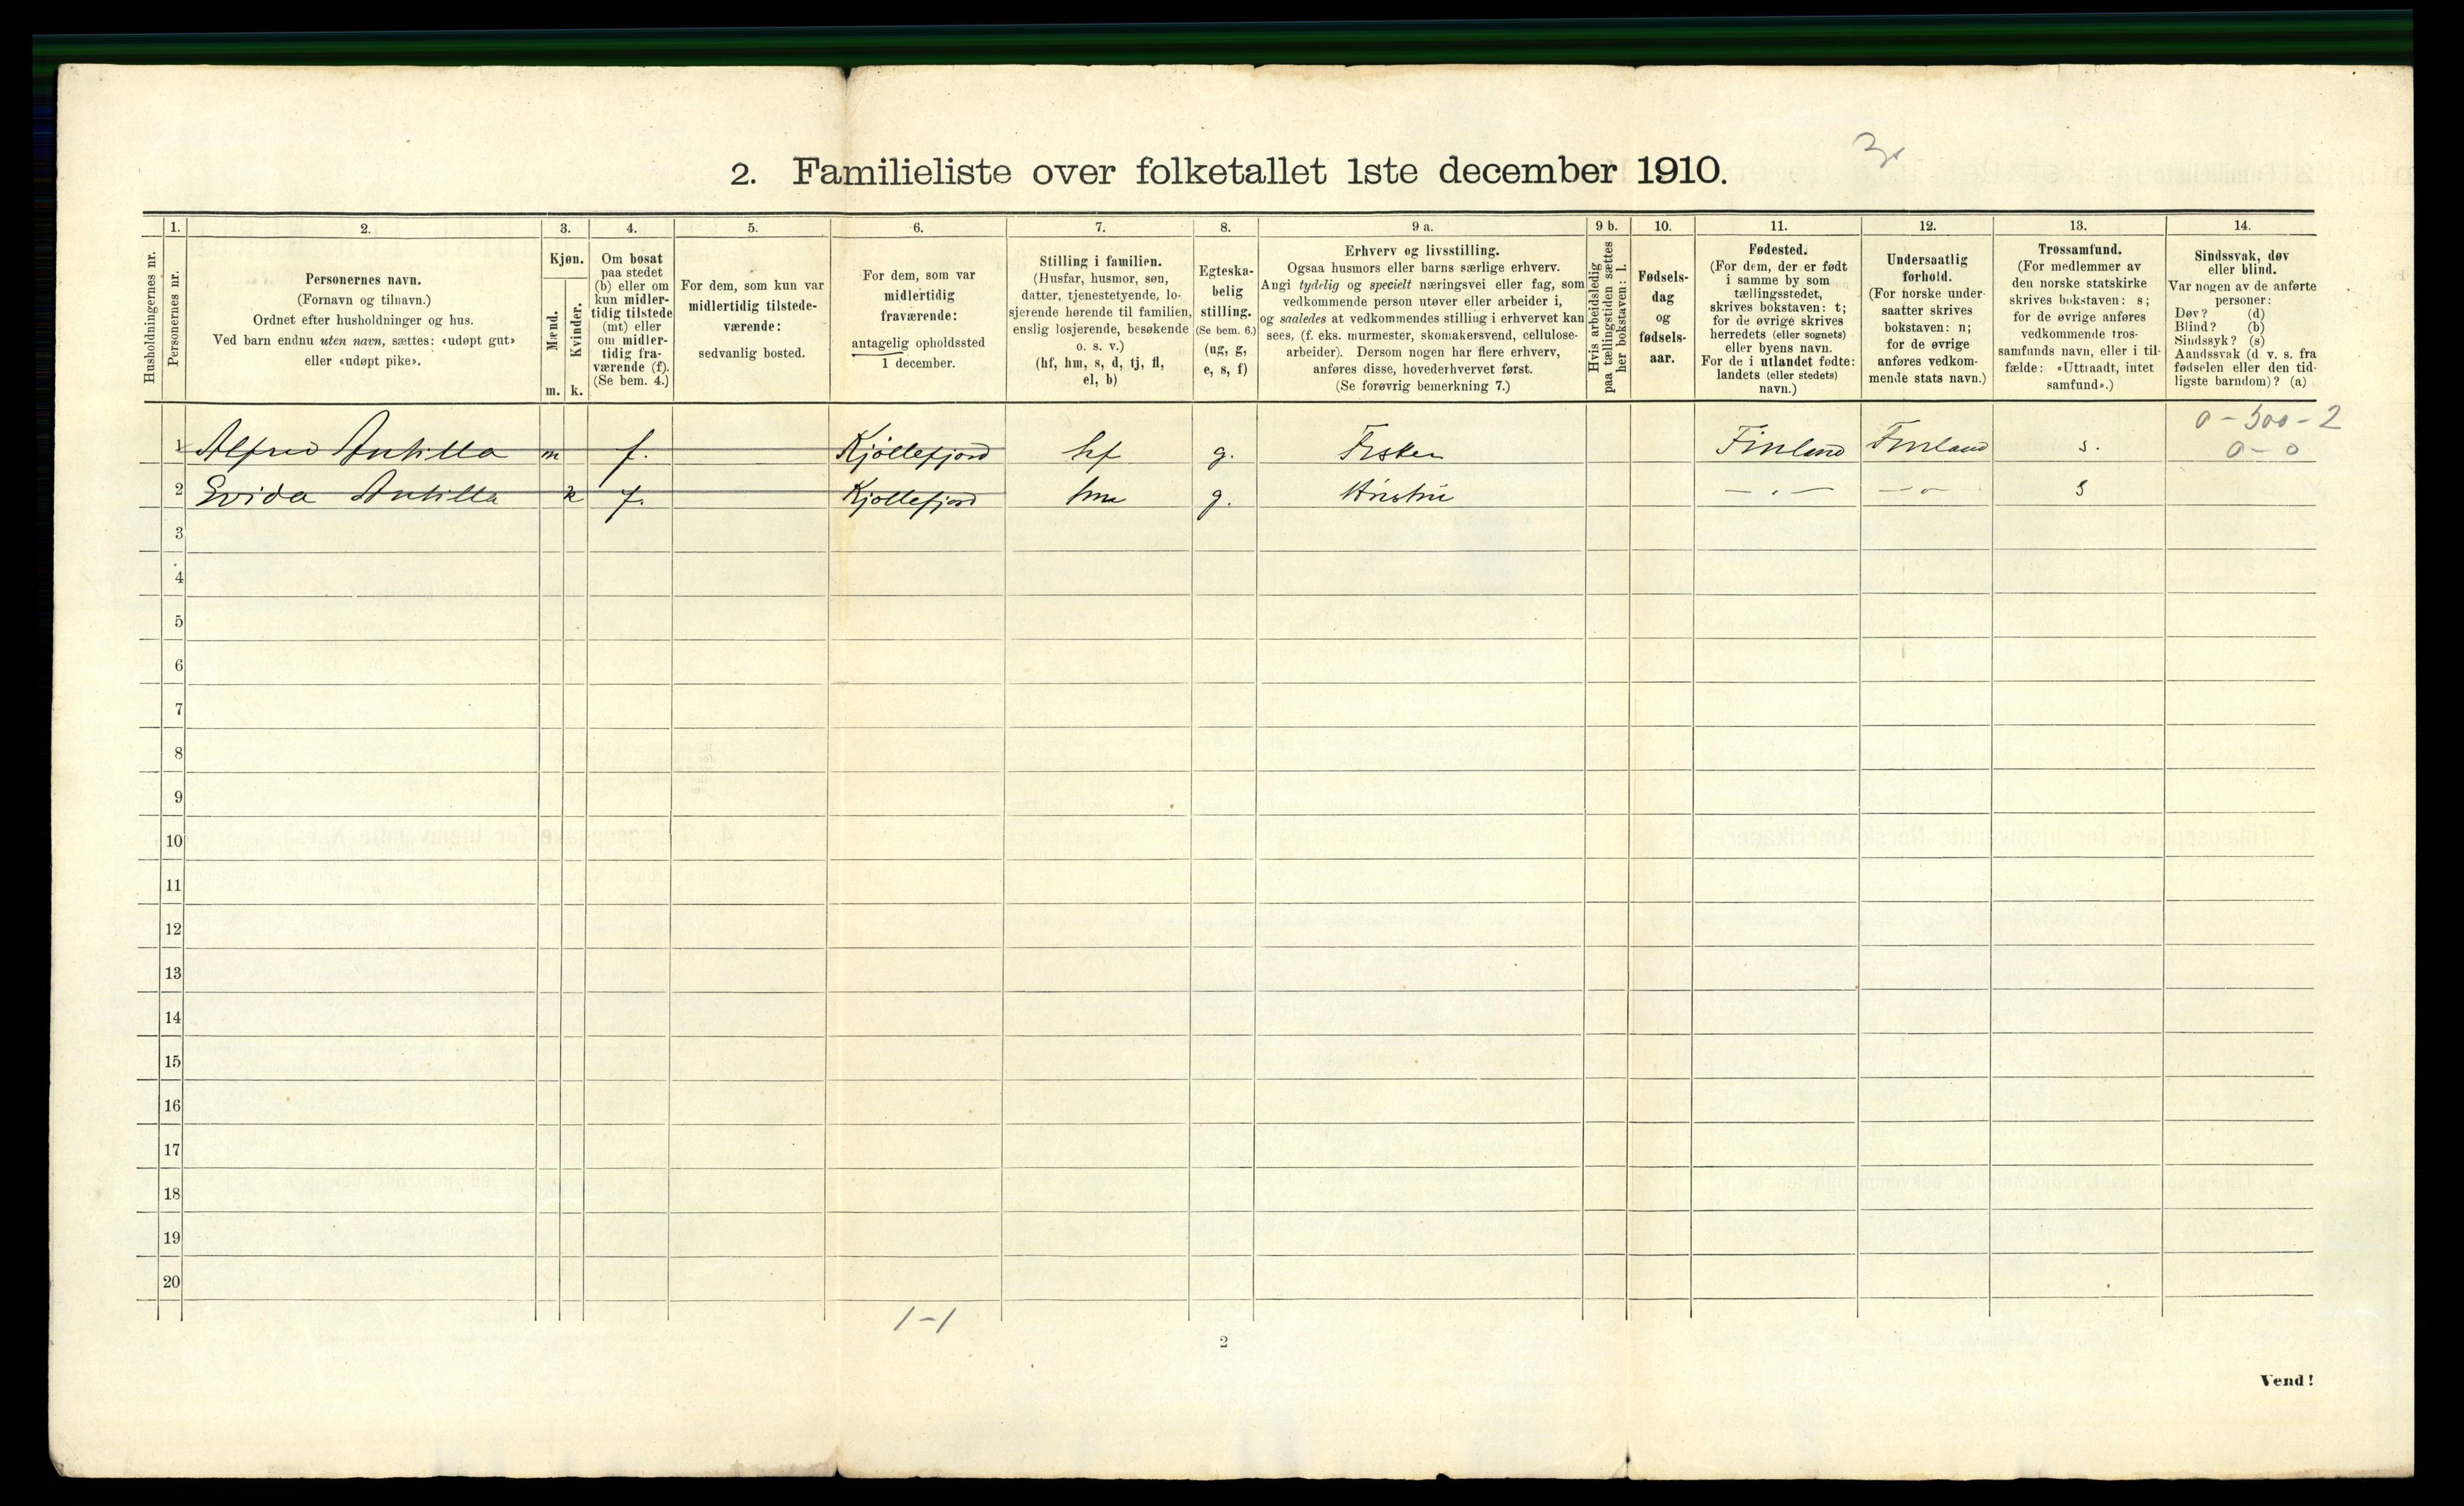 2. Familieliste over folketallet 1ste december 1910.
1.
2.
3.
4.
5.
6.
7.
8.
9 a.
9 b.
10.
11.
12.
13.
14.
Husholdningernes nr.
Personernes nr.
Personernes navn.
(Fornavn og tilnavn.)
Ordnet efter husholdninger og hus.
Ved barn endnu uten navn, sættes: «udøpt gut»
eller «udøpt pike».
Kjøn.
Mænd.
Kvinder.
m.
k.
Om bosat
paa stedet
(b) eller om
kun midler-
tidig tilstede
(mt) eller
om midler-
tidig fra-
værende (f).
(Se bem. 4.)
For dem, som kun var
midlertidig tilstede-
værende:
sedvanlig bosted.
For dem, som var
midlertidig
fraværende:
antagelig opholdssted
1 december.
Stilling i familien.
(Husfar, husmor, søn,
datter, tjenestetyende, lo-
sjerende hørende til familien,
enslig losjerende, besøkende
o. s. v.)
(hf, hm, s, d, tj, fl,
el, b)
Egteska-
belig
stilling.
(Se bem. 6.)
(ug, g,
e, s, f)
Erhverv og livsstilling.
Ogsaa husmors eller barns særlige erhverv.
Angi tydelig og specielt næringsvei eller fag, som
vedkommende person utøver eller arbeider i,
og saaledes at vedkommendes stilling i erhvervet kan
sees, (f. eks. murmester, skomakersvend, cellulose-
arbeider). Dersom nogen har flere erhverv,
anføres disse, hovederhvervet først.
(Se forøvrig bemerkning 7.)
Hvis arbeidsledig
paa tællingstiden sættes
her bokstaven: l.
Fødsels-
dag
og
fødsels-
aar.
Fødested.
(For dem, der er født
i samme by som
tællingsstedet,
skrives bokstaven: t;
for de øvrige skrives
herredets (eller sognets)
eller byens navn.
For de i utlandet fødte:
landets (eller stedets)
navn.)
Undersaatlig
forhold.
(For norske under-
saatter skrives
bokstaven: n;
for de øvrige
anføres vedkom-
mende stats navn.)
Trossamfund.
(For medlemmer av
den norske statskirke
skrives bokstaven: s;
for de øvrige anføres
vedkommende tros-
samfunds navn, eller i til-
fælde: «Uttraadt, intet
samfund».)
Sindssvak, døv
eller blind.
Var nogen av de anførte
personer:
Døv? (d)
Blind? (b)
Sindssyk? (s)
Aandssvak (d. v. s. fra
fødselen eller den tid-
ligste barndom)? (a)
0 - 500 - 2
1 Alfred Antilla m f. Kjöllefjord hf g. Fisker Finland Finland s. 0 - 0
2 Evida Antilla k f. Kjöllefjord hm g. Hustru — " — — " — s
3
4
5
6
7
8
9
10
11
12
13
14
15
16
17
18
19
20
1-1
2
Vend!